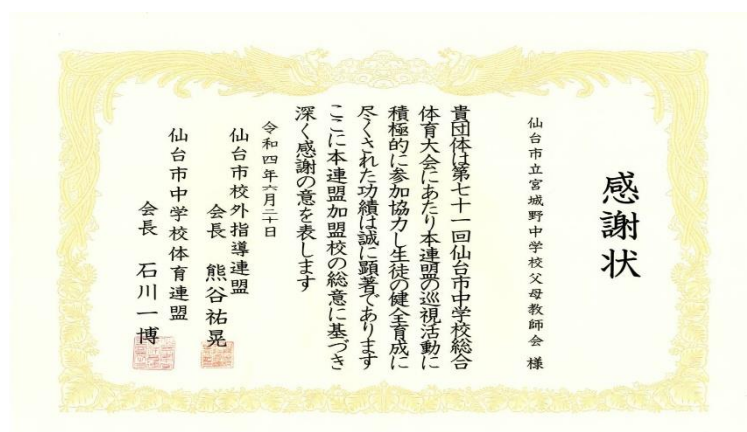 感謝状
仙台市立宮城野中学校父母教師会 様
貴団体は第七十一回仙台市中学校総合
体育大会にあたり本連盟の巡視活動に
積極的に参加協力し生徒の健全育成に
尽くされた功績は誠に顕著であります
ここに本連盟加盟校の総意に基づき
深く感謝の意を表します
令和四年六月二十日
仙台市校外指導連盟
会長 熊谷祐晃
仙台市中学校体育連盟
会長 石川一博